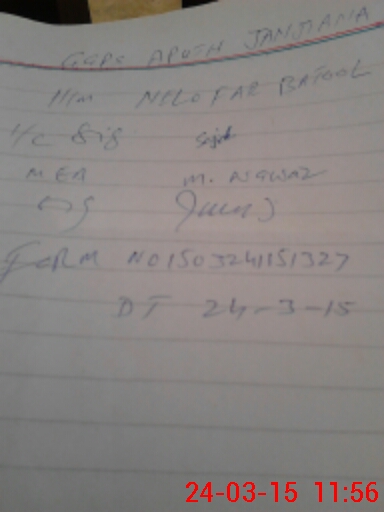 GGPS APUTH JANJIANA
H/M NILOFAR BATOOL
I/C Sig
MEA M. NAWAZ
Sig
FORM NO 1503241151327
DT 24-3-15
24-03-15 11:56